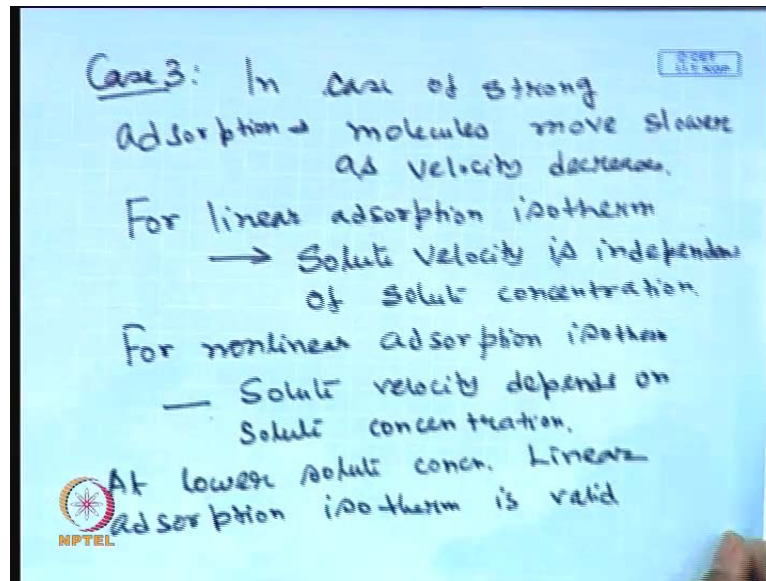 Case 3: In case of strong
adsorption → molecules move slower
as velocity decreases.
For linear adsorption isotherm
→ Solute velocity is independen
of solut concentration
For nonlinear adsorption isotherm
— Solute velocity depends on
Solute concentration.
At lower solute concn. Linear
adsorption isotherm is valid
NPTEL